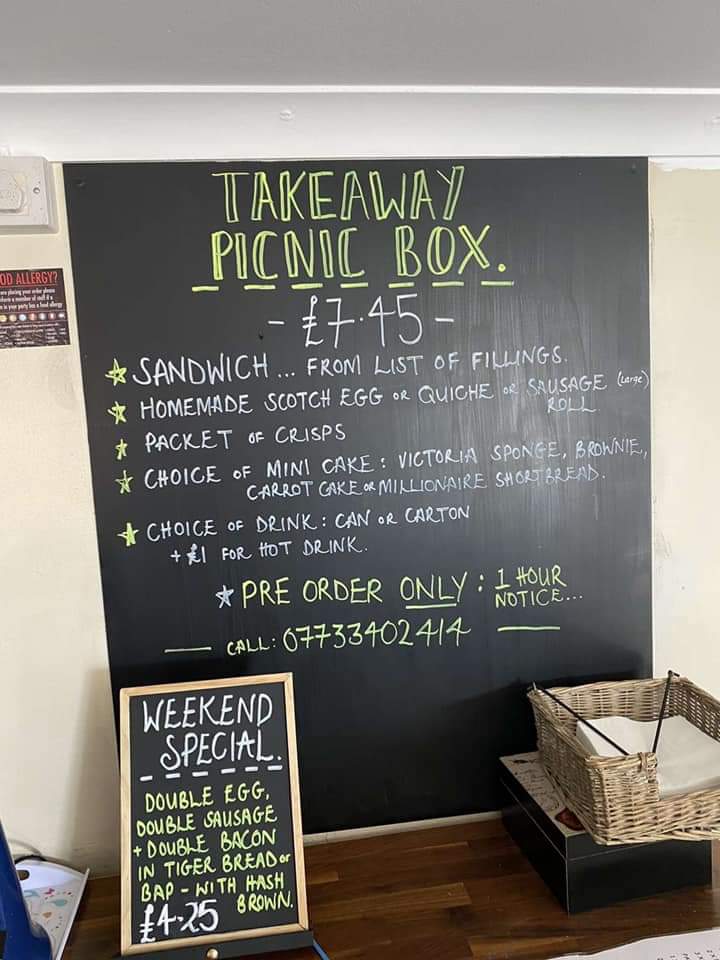 TAKEAWAY
PICNIC BOX.
- £7.45 -
SANDWICH... FROM LIST OF FILLINGS.
HOMEMADE SCOTCH EGG OR QUICHE OR SAUSAGE (Large)
ROLL.
PACKET OF CRISPS
CHOICE OF MINI CAKE: VICTORIA SPONGE, BROWNIE,
CARROT CAKE OR MILLIONAIRE SHORTBREAD.
CHOICE OF DRINK: CAN OR CARTON
+ £1 FOR HOT DRINK.
PRE ORDER ONLY: 1 HOUR
NOTICE...
CALL: 07733402414
OD ALLERGY?
WEEKEND
SPECIAL.
DOUBLE EGG,
DOUBLE SAUSAGE
+ DOUBLE BACON
IN TIGER BREAD OR
BAP - WITH HASH
BROWN.
£4.25